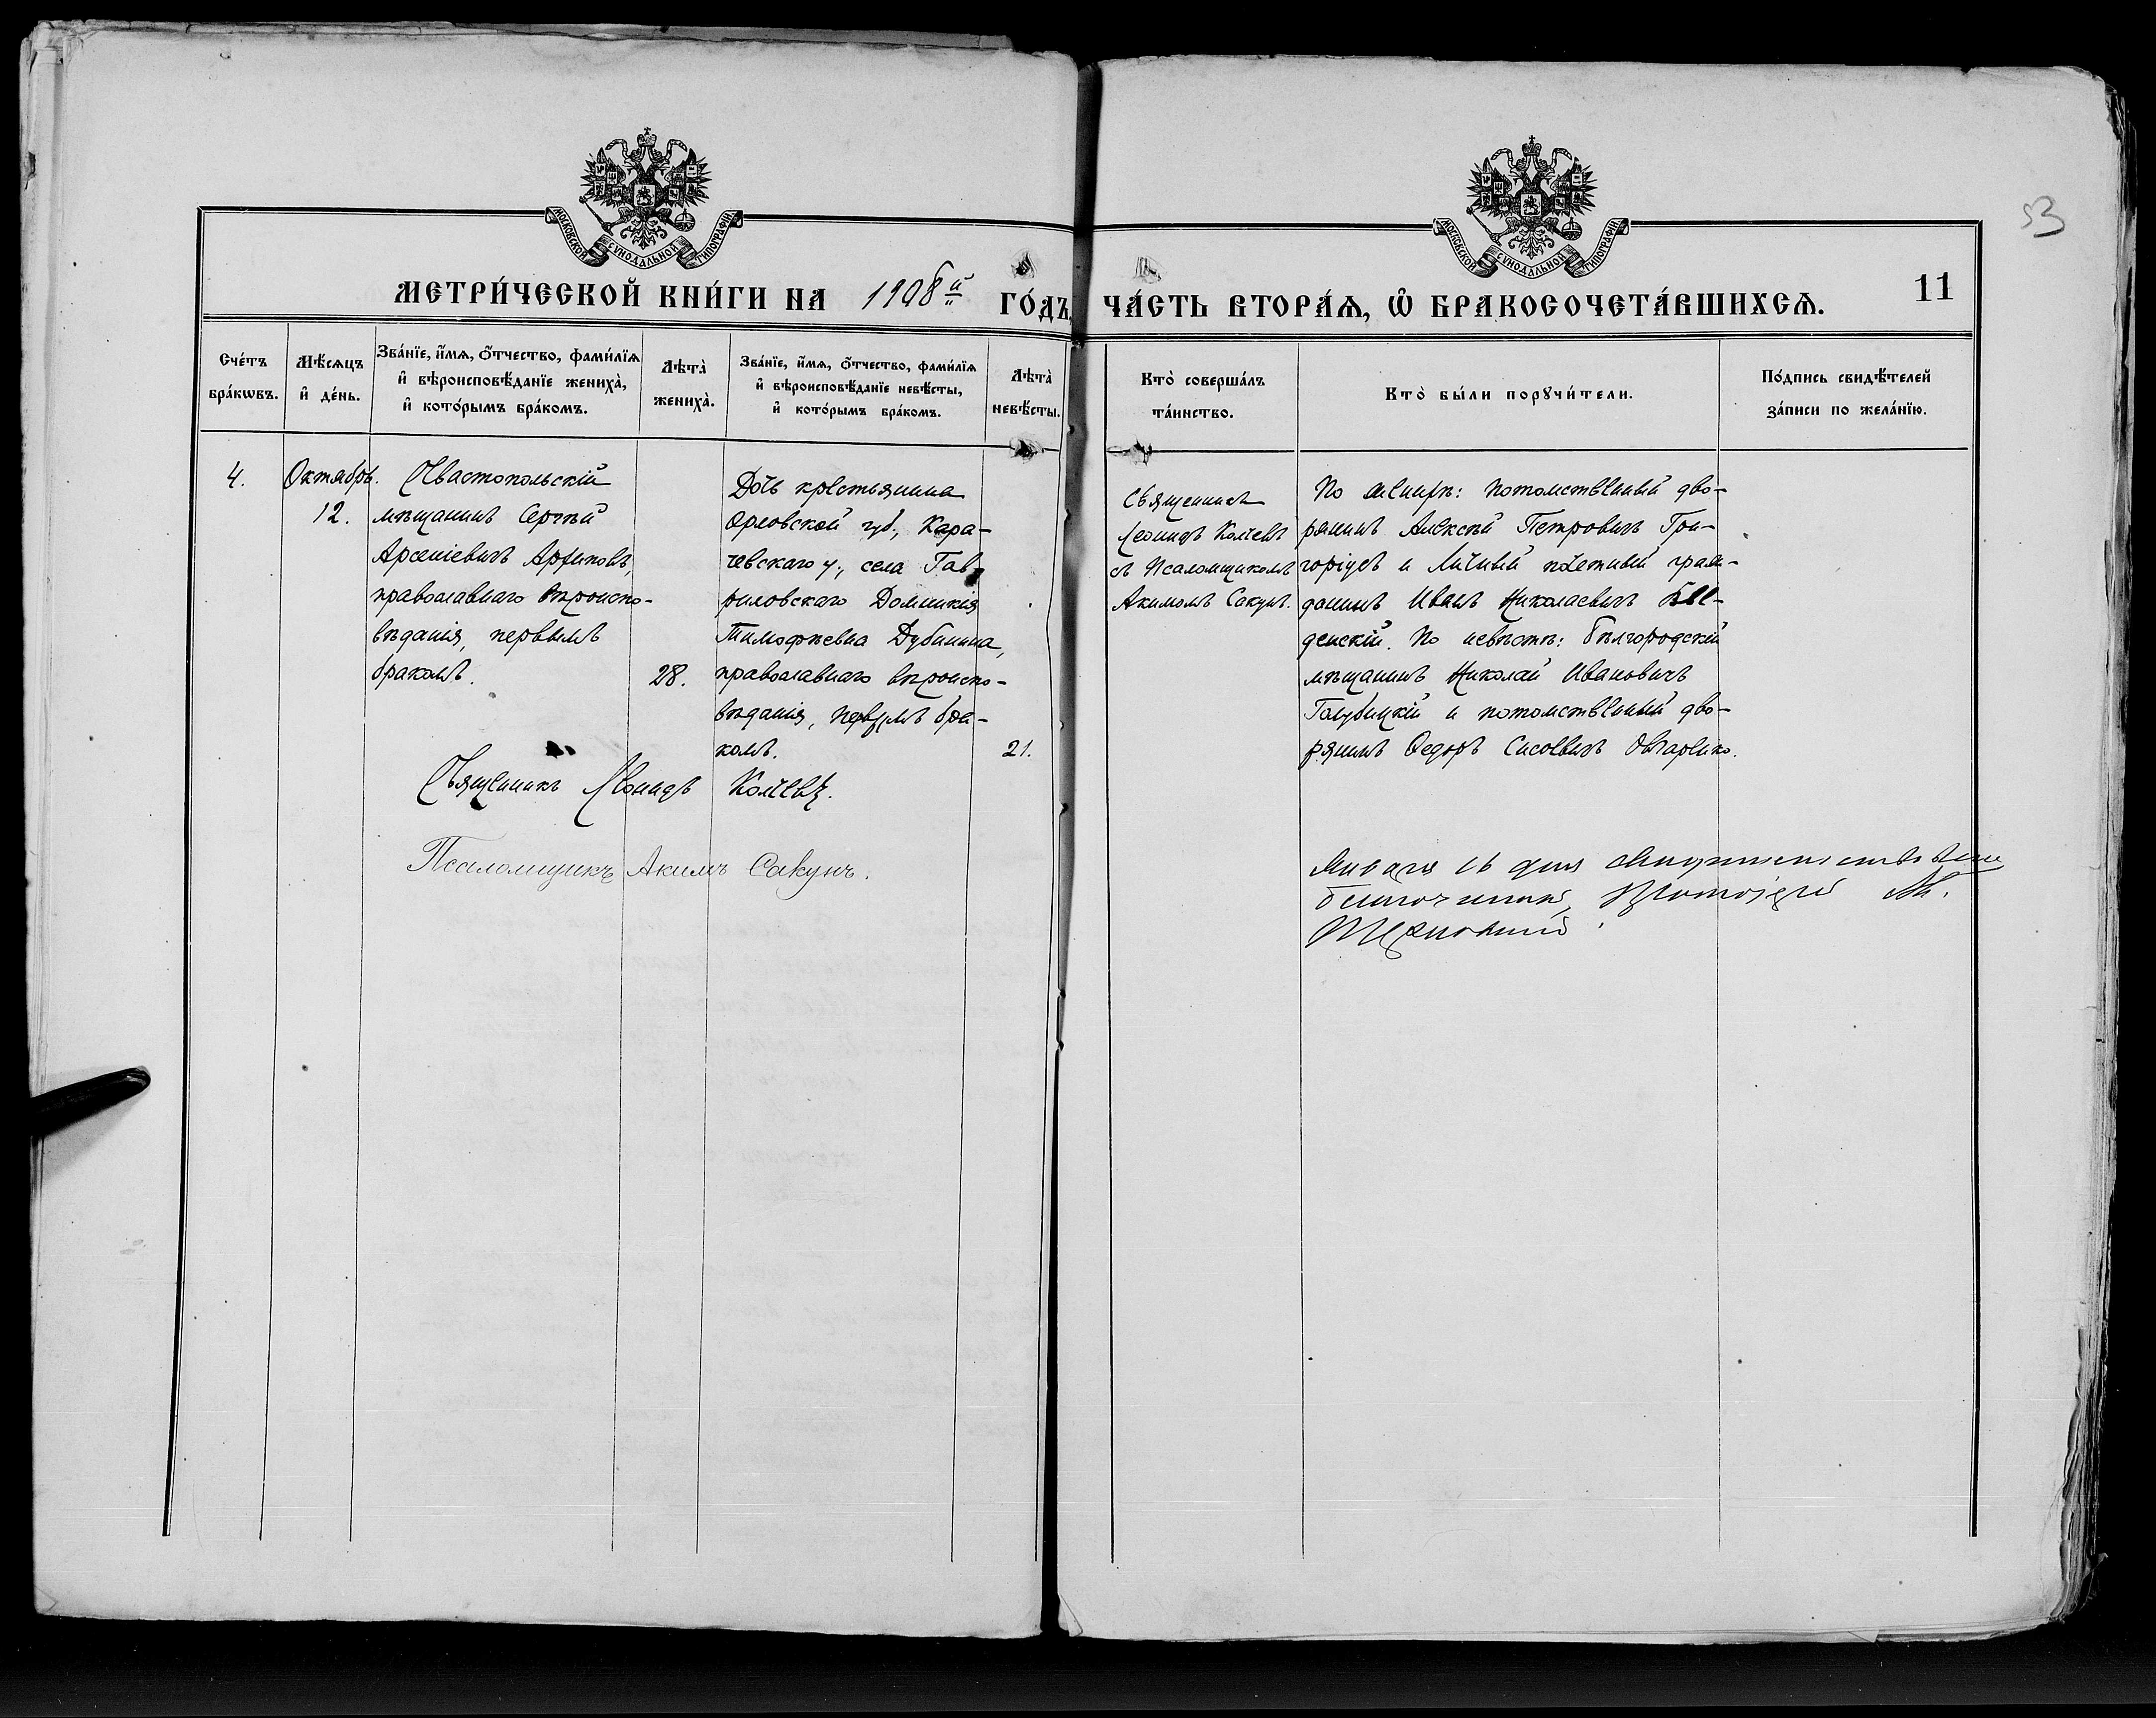 МОСКОВСКОЙ СѴНОДАЛЬНОЙ ТИПОГРАФІИ
МОСКОВСКОЙ СѴНОДАЛЬНОЙ ТИПОГРАФІИ
53
МЕТРИ́ЧЕСКОЙ КНИ́ГИ НА 1908й ГО́ДЪ,
ЧА́СТЬ ВТОРА́Ѧ, Ѡ҆ БРАКОСОЧЕТА́ВШИХСѦ.
11
Сче́тъ
бра́кѡвъ.
Мѣ́сѧцъ
и҆ де́нь.
Зва́нїе, и҆́мѧ, ѻ҆́тчество, фами́лїѧ
и҆ вѣроисповѣ́данїе жениха̀,
и҆ кото́рымъ бра́комъ.
Лѣта̀
жениха̀.
Зва́нїе, и҆́мѧ, ѻ҆́тчество, фами́лїѧ
и҆ вѣроисповѣ́данїе невѣ́сты,
и҆ кото́рымъ бра́комъ.
Лѣта̀
невѣ́сты.
Кто̀ соверша́лъ
та́инство.
Кто̀ бы́ли порꙋчи́тели.
По́дпись свидѣ́телей
за́писи по жела́нїю.
4.
Октябрь.
12.
Севастопольскій
мѣщанинъ Сергѣй
Арсеніевичъ
православнаго вѣроиспо-
вѣданія, первымъ
бракомъ.
28.
Дочь крестьянина
Орловской губ., Кара-
чевскаго у., села Гав-
риловскаго Домникія
Тимофѣевна Дубинина,
православнаго вѣроиспо-
вѣданія, первымъ бра-
комъ.
21.
Священникъ
Леонидъ Колчевъ
съ Псаломщикомъ
Акимомъ Сакунъ.
По женихѣ: потомственный дво-
рянинъ Алексѣй Петровичъ Гри-
и Личный почетный граж-
данинъ Иванъ Николаевичъ Вве-
денскій. По невѣстѣ: бѣлгородскій
мѣщанинъ Николай Ивановичъ
Голубицкій и потомственный дво-
рянинъ Ѳедоръ Сисоевичъ Овчаренко.
Священникъ Леонидъ Колчевъ.
Псаломщикъ Акимъ Сакунъ.
Января 16 дня
благочинный, Протоіерей